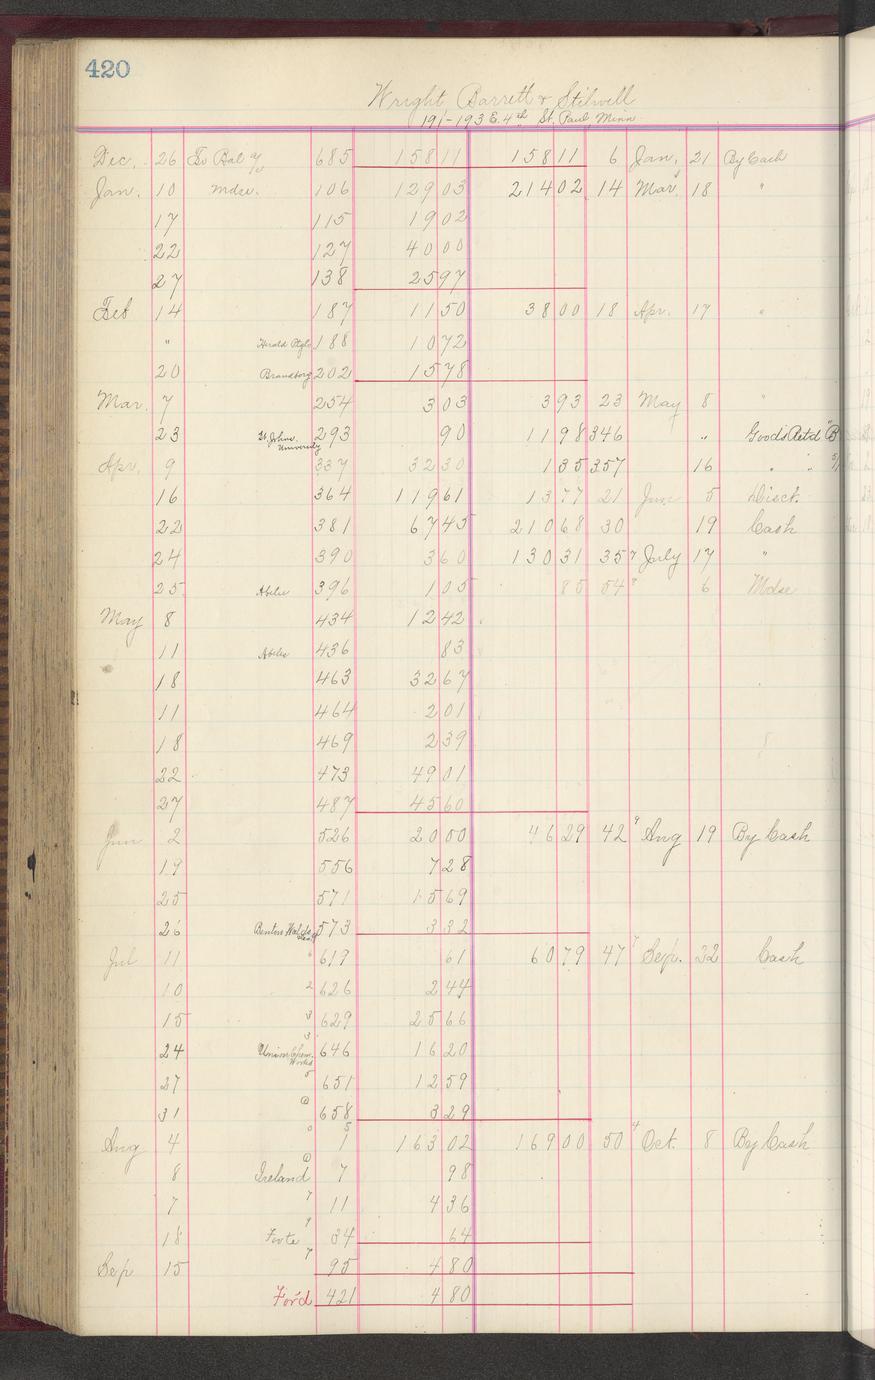 420
Wright, Barrett & Stilwell
191-193 E. 4th St. Paul Minn
Dec. 26 To Bal a/c 685 158 11 158 11 6 Jan. 21 By Cash
Jan. 10 mdse. 106 129 03 214 02 14 Mar 18 "
17 115 19 02
22 127 40 00
27 138 25 97
Feb 14 187 11 50 38 00 18 Apr. 17 "
" Herald Ptg Co 188 10 72
20 Brandborg 202 15 78
Mar. 7 254 3 03 3 93 23 May 8 "
23 St. Johns University 293 90 11 98 346 " Goods Retd
Apr. 9 337 32 30 1 35 357 16 " "
16 364 119 61 13 77 21 June 5 Disct.
22 381 67 45 210 68 30 19 Cash
24 390 3 60 130 31 35 July 17 "
25 Abeles 396 1 05 85 54 6 Mdse
May 8 434 12 42
11 Abeles 436 83
18 463 32 67
11 464 2 01
18 469 2 39
22 473 49 01
27 487 45 60
Jun 2 526 20 00 46 29 42 Aug 19 By Cash
19 556 7 28
25 571 15 69
26 573 3 32
Jul 11 619 61 60 79 47 Sep. 22 Cash
10 626 2 44
15 629 25 66
24 Union Chem. Works 646 16 20
27 651 12 59
31 658 3 29
Aug 4 1 163 02 169 00 50 Oct. 8 By Cash
8 Ireland 7 98
7 11 4 36
18 Foote 34 64
Sep 15 95 4 80
For'd 421 4 80